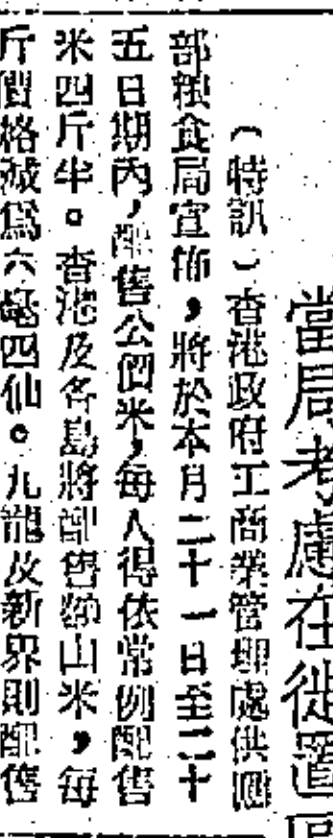 當局考慮在徙置區
（特訊）香港政府工商業管理處供應
部粮食局宣佈，將於本月二十一日至二十
五日期內，配售公價米，每人得依常例配售
米四斤半。香港及各島將配售 山米，每
斤價格減為六毫四仙。九龍及新界則配售